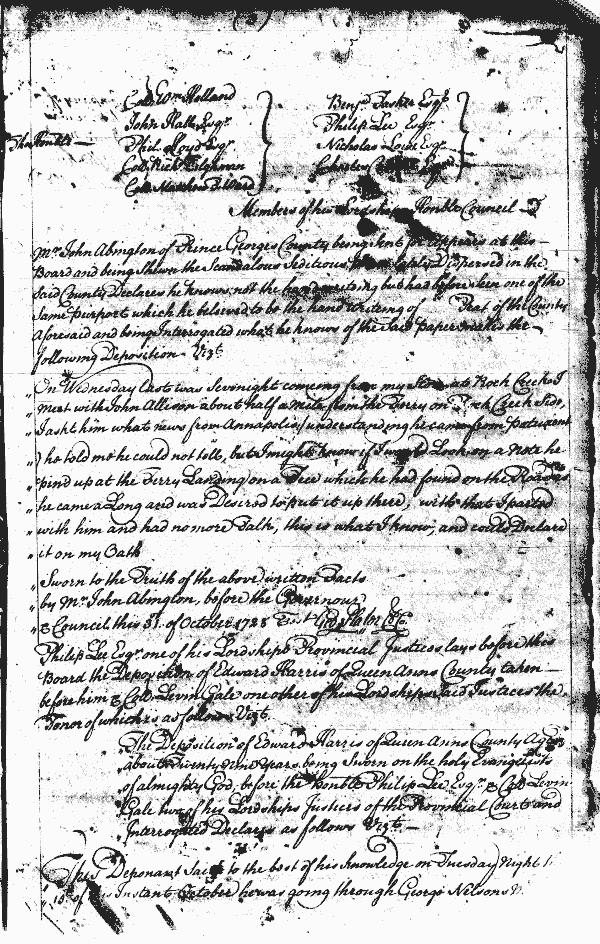 Coll Wm Holland
Benja Tasker Esqr
John Hall Esqr
Philip Lee Esqr
The Honble
Phil. Lloyd Esqr
Nicholas Lowe Esqr
Coll Richd Tilghman
Charles Esqr
Coll Matthew T. Ward
Members of his Lordships Honble Council
Mr John Abington of Prince Georges County being sent for appears at this
Board and being Shewn the Scandalous Seditious lately Dispersed in the
said County Declares he knows not the hand writing but had before seen one of the
Same purport which he believed to be the hand writeing of Peat of the County
Aforesaid and being Interrogated what he knows of the said paper makes the
following Deposition Vizt
On Wednesday Last was Sevinight comeing from my Store at Rock Creek I
mett with John Allison about half a mile from the Ferry on Rock Creek Side,
I askt him what news from Annapolis (understanding he came from Patuxent
) he told me he could not tell, but I might know if I would Look on a Note he
pind up at the Ferry Landing on a Tree which he had found on the Road as
he came a Long and was Desired to put it up there, with that I parted
with him and had no more Talk, this is what I know, and could Declare
it on my Oath
Sworn to the Truth of the above written Facts
by Mr John Abington, before the Governour
& Council this 31. of October 1728 Test Geo. Plater
Philip Lee Esqr one of his Lordships Provincial Justices lays before this
Board the Deposition of Edward Harris of Queen Anns County taken
before him & Coll Levin Gale one other of his Lordships said Justices the
Tenor of which is as follows Vizt.
The Deposition of Edward Harris of Queen Anns County Aged
about Twenty nine Years being Sworn on the holy Evangelists
of almighty God, before the Honble Philip Lee Esqr & Coll Levin
Gale two of his Lordships Justices of the Provincial Court and
Interrogated Declares as follows Vizt.
This Deponant Saith to the best of his knowledge on Tuesday Night
15th of this Instant October he was going through George Nelsons